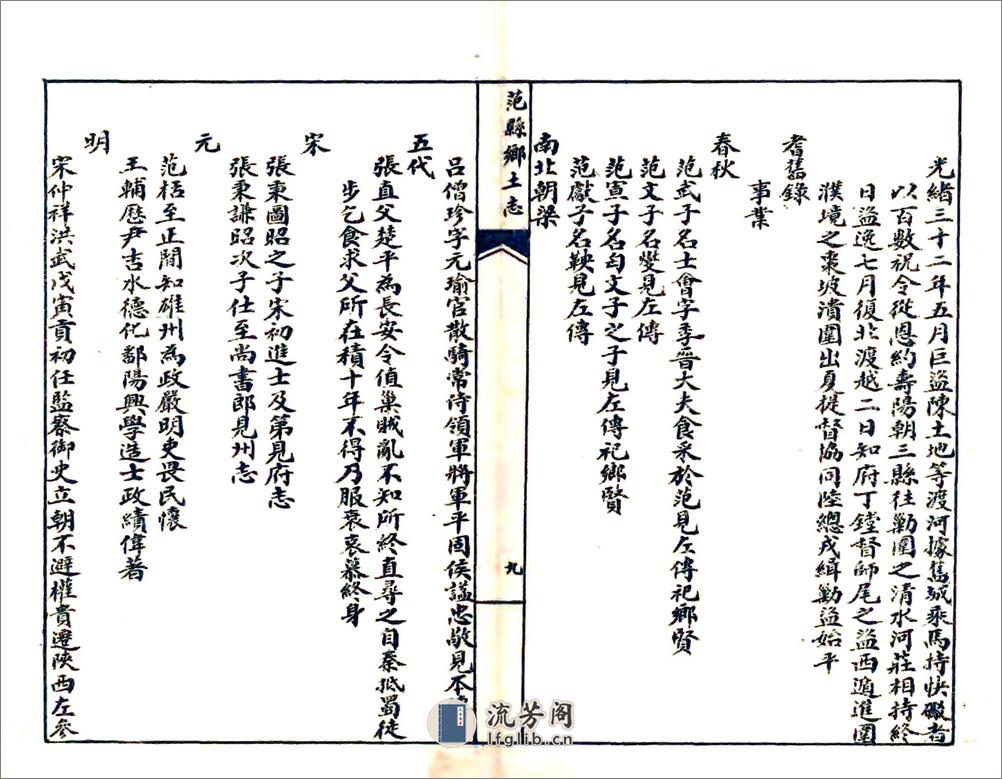 光緒三十二年五月巨盜陳土地等渡河據舊城乘馬持快礮者
以百數祝令從恩約壽陽朝三縣往勦圍之清水河莊相持終
日盜逸七月復北渡越二日知府丁鏜督師尾之盜西遁進圍
濮境之棗坡潰圍出夏提督協同陸總戎緝勦盜始平
耆舊錄
事業
春秋
范武子名士會字季晉大夫食采於范見左傳祀鄉賢
范文子名燮見左傳
范宣子名匄文子之子見左傳祀鄉賢
范獻子名鞅見左傳
南北朝梁
范縣鄉土志
九
呂僧珍字元瑜官散騎常侍領軍將軍平固侯諡忠敬見本
五代
張直父楚平為長安令值巢賊亂不知所終直尋之自秦抵蜀徒
步乞食求父所在積十年不得乃服衰哀慕終身
宋
張秉圖昭之子宋初進士及第見府志
張秉謙昭次子仕至尚書郎見州志
元
范梈至正間知雄州為政嚴明吏畏民懷
王輔歷尹吉水德化鄱陽興學造士政績偉著
明
宋仲祥洪武戊寅貢初任監察御史立朝不避權貴遷陝西左參
流芳阁
lfglib.cn